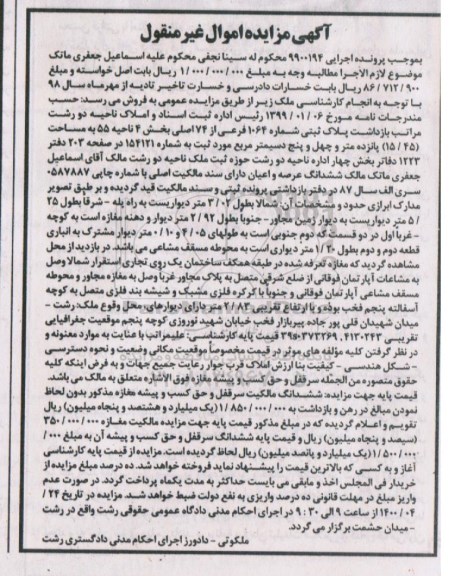 آگهی مزایده اموال غیر منقول
بموجب پرونده اجرایی ۹۹۰۰۱۹۴ محکوم له سینا نجفی محکوم علیه اسماعیل جعفری ماتک
موضوع لازم الاجرا مطالبه وجه به مبلغ ۱/۰۰۰/۰۰۰/۰۰۰ ریال بابت اصل خواسته و مبلغ
۸۶/۷۱۲/۹۰۰ ریال بابت خسارات دادرسی و خسارت تاخیر تادیه از مهرماه سال ۹۸
با توجه به انجام کارشناسی ملک زیر از طریق مزایده عمومی به فروش می رسد: حسب
مندرجات نامه مورخ ۱۳۹۹/۰۱/۰۶ رئیس اداره ثبت اسناد و املاک ناحیه دو رشت
مراتب بازداشت پلاک ثبتی شماره ۱۰۶۴ فرعی از ۷۴ اصلی بخش ۴ ناحیه ۵۵ به مساحت
(۱۵/۴۵) پانزده متر و چهل و پنج دسیمتر مربع مورد ثبت به شماره ۱۵۴۱۲۱ در صفحه ۲۰۳ دفتر
۱۲۲۳ دفاتر بخش چهار اداره ناحیه دو رشت حوزه ثبت ملک ناحیه دو رشت مالک آقای اسماعیل
جعفری ماتک مالک ششدانگ عرصه و اعیان دارای سند مالکیت اصلی با شماره چاپی ۰۵۸۷۸۸۷
سری الف سال ۸۷ در دفتر بازداشتی پرونده ثبتی و سند مالکیت قید گردیده و بر طبق تصویر
مدارک ابرازی حدود و مشخصات آن: شمالا بطول ۳/۰۲ متر دیواریست به راه پله - شرقا بطول ۲۵
/۵ متر دیواریست به دیوار زمین مجاور - جنوبا بطول ۲/۹۲ متر دیوار و دهنه مغازه است به کوچه
- غربا اول در دو قسمت که دوم جنوبی است به طولهای ۴/۰۵ و ۰/۱۰ متر دیوار مشترک به انباری
قطعه دوم و دوم بطول ۱/۳۰ متر دیواری است به محوطه مسقف مشاعی می باشد. در بازدید از محل
مشاهده گردید که مغازه تعرفه شده در طبقه همکف ساختمان یک روی تجاری استقرار شمالا وصل
به مشاعات آپارتمان فوقانی از ضلع شرقی متصل به پلاک مجاور غربا وصل به مغازه مجاور و محوطه
مسقف مشاعی آپارتمان فوقانی و جنوبا با کرکره فلزی مشبک و شیشه بند فلزی متصل به کوچه
آسفالته پنجم فخب بوده و با ارتفاع تقریبی ۲/۸۳ متر دارای دیوارهای، محل وقوع ملک رشت -
میدان شهیدان قلی پور جاده پیربازار فخب خیابان شهید نوروزی کوچه پنجم موقعیت جغرافیایی
تقریبی ۴۱۳۰۲۴۳، ۳۹۵۰۳۷۳۲۶۹ قیمت پایه کارشناسی: علیمراتب با عنایت به موارد معنونه و
در نظر گرفتن کلیه مؤلفه های موثر در قیمت مخصوصاً موقعیت مکانی وضعیت و نحوه دسترسی
- شکل هندسی - کیفیت بنا ارزش املاک قرب جوار رعایت جمیع جهات و به فرض اینکه کلیه
حقوق متصوره من الجمله سرقفل و حق کسب و پیشه مغازه فوق الاشاره متعلق به مالک می باشد.
قیمت پایه جهت مزایده: ششدانگ مالکیت سرقفل و حق کسب و پیشه مغازه مذکور بدون لحاظ
نمودن مبالغ در رهن و بازداشت به ۱/۸۵۰/۰۰۰/۰۰۰ (یک میلیارد و هشتصد و پنجاه میلیون) ریال
تقویم و اعلام گردیده که در مبلغ مذکور قیمت پایه جهت مزایده مالکیت مغازه ۳۵۰/۰۰۰/۰۰۰
(سیصد و پنجاه میلیون) ریال و قیمت پایه ششدانگ سرقفل و حق کسب و پیشه آن به مبلغ ۰۰۰/
۱/۵۰۰/۰۰۰ (یک میلیارد و پانصد میلیون) ریال لحاظ گردیده است. مزایده از قیمت پایه کارشناسی
آغاز و به کسی که بالاترین قیمت را پیشنهاد نماید فروخته خواهد شد. ده درصد مبلغ مزایده از
خریدار فی المجلس اخذ و مابقی می بایست حداکثر به مدت یکماه پرداخت گردد. در صورت عدم
واریز مبلغ در مهلت قانونی ده درصد واریزی به نفع دولت ضبط خواهد شد. مزایده در تاریخ ۲۴/
۱۴۰۰/۰۴ از ساعت ۹ الی ۹:۳۰ در اجرای احکام مدنی دادگاه عمومی حقوقی رشت واقع در رشت
- میدان حشمت برگزار می گردد.
ملکوتی - دادورز اجرای احکام مدنی دادگستری رشت